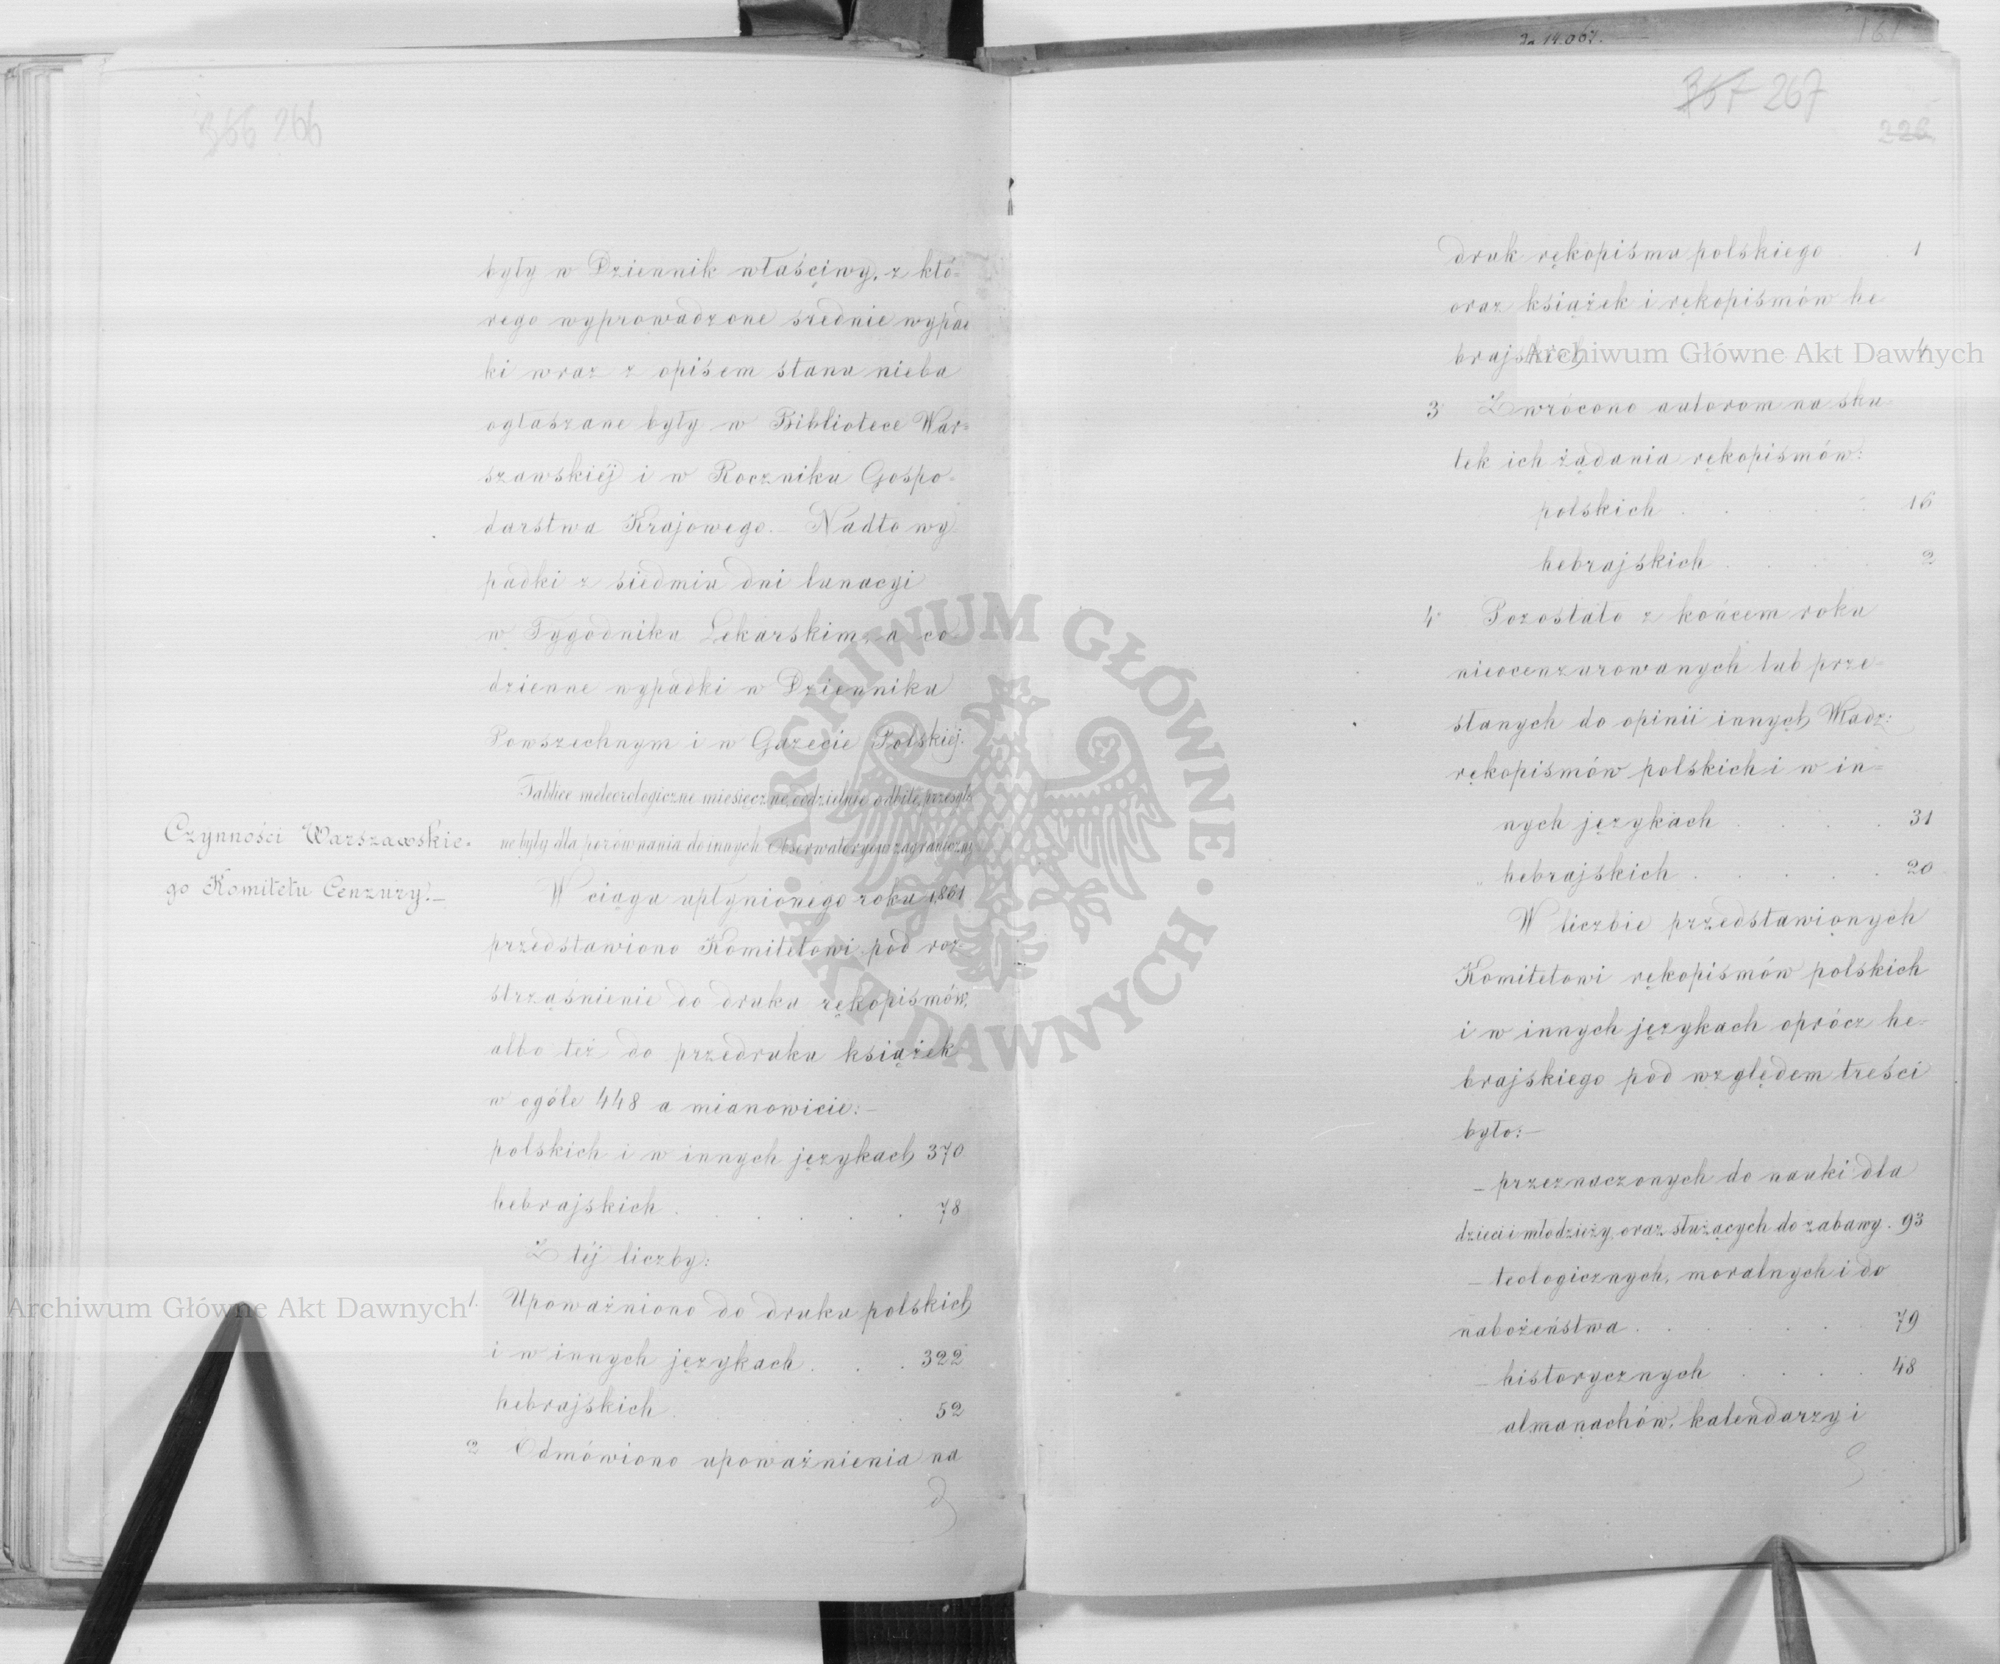 366 266
były w Dziennik właściwy, z któ=
rego wyprowadzone srednie wypad
ki wraz z opisem stanu nieba
ogłaszane były w Bibliotece War=
szawskiéj i w Roczniku Gospo=
darstwa Krajowego. – Nadto wy
padki z siedmiu dni lunacyi
w Tygodniku Lekarskim, a co
dzienne wypadki w Dzienniku
Powszechnym i w Gazecie Polskiéj.
Tablice meteorologiczne miesięczne, oddzielnie odbite, przesyła
ne były dla porównania do innych Obserwatoryów zagraniczny
Czynności Warszawskie=
go Komitetu Cenzury. –
W ciągu upłynionego roku 1861
przedstawiono Komitetowi pod roz=
strząśnienie do druku rękopismów,
albo też do przedruku książek
w ogóle 448 a mianowicie: –
polskich i w innych językach 370
hebrajskich . . . . . 78
Z téj liczby:
1. Upoważniono do druku polskich
i w innych językach . . . 322
hebrajskich . . . . . 52
2 Odmówiono upoważnienia na
161
367 267
226
druk rękopismu polskiego . . 1
oraz książek i rękopismów he
brajskich . . . . 4
3 Zwrócono autorom na sku
tek ich żądania rękopismów:
polskich . . . . . 16
hebrajskich . . . . 2
4 Pozostało z końcem roku
nieocenzurowanych lub prze=
słanych do opinii innych Władz:
rękopismów polskich i w in=
nych językach . . . . 31
„ hebrajskich . . . . . 20
W liczbie przedstawionych
Komitetowi rękopismów polskich
i w innych językach oprócz he=
brajskiego pod względem treści
było: –
– przeznaczonych do nauki dla
dzieci i młodzieży, oraz służących do zabawy . 93
– teologicznych, moralnych i do
nabożeństwa . . . . . 79
– historycznych . . . . 48
– almanachów, kalendarzy i
Archiwum Główne Akt Dawnych
Archiwum Główne Akt Dawnych
ARCHIWUM GŁÓWNE AKT DAWNYCH